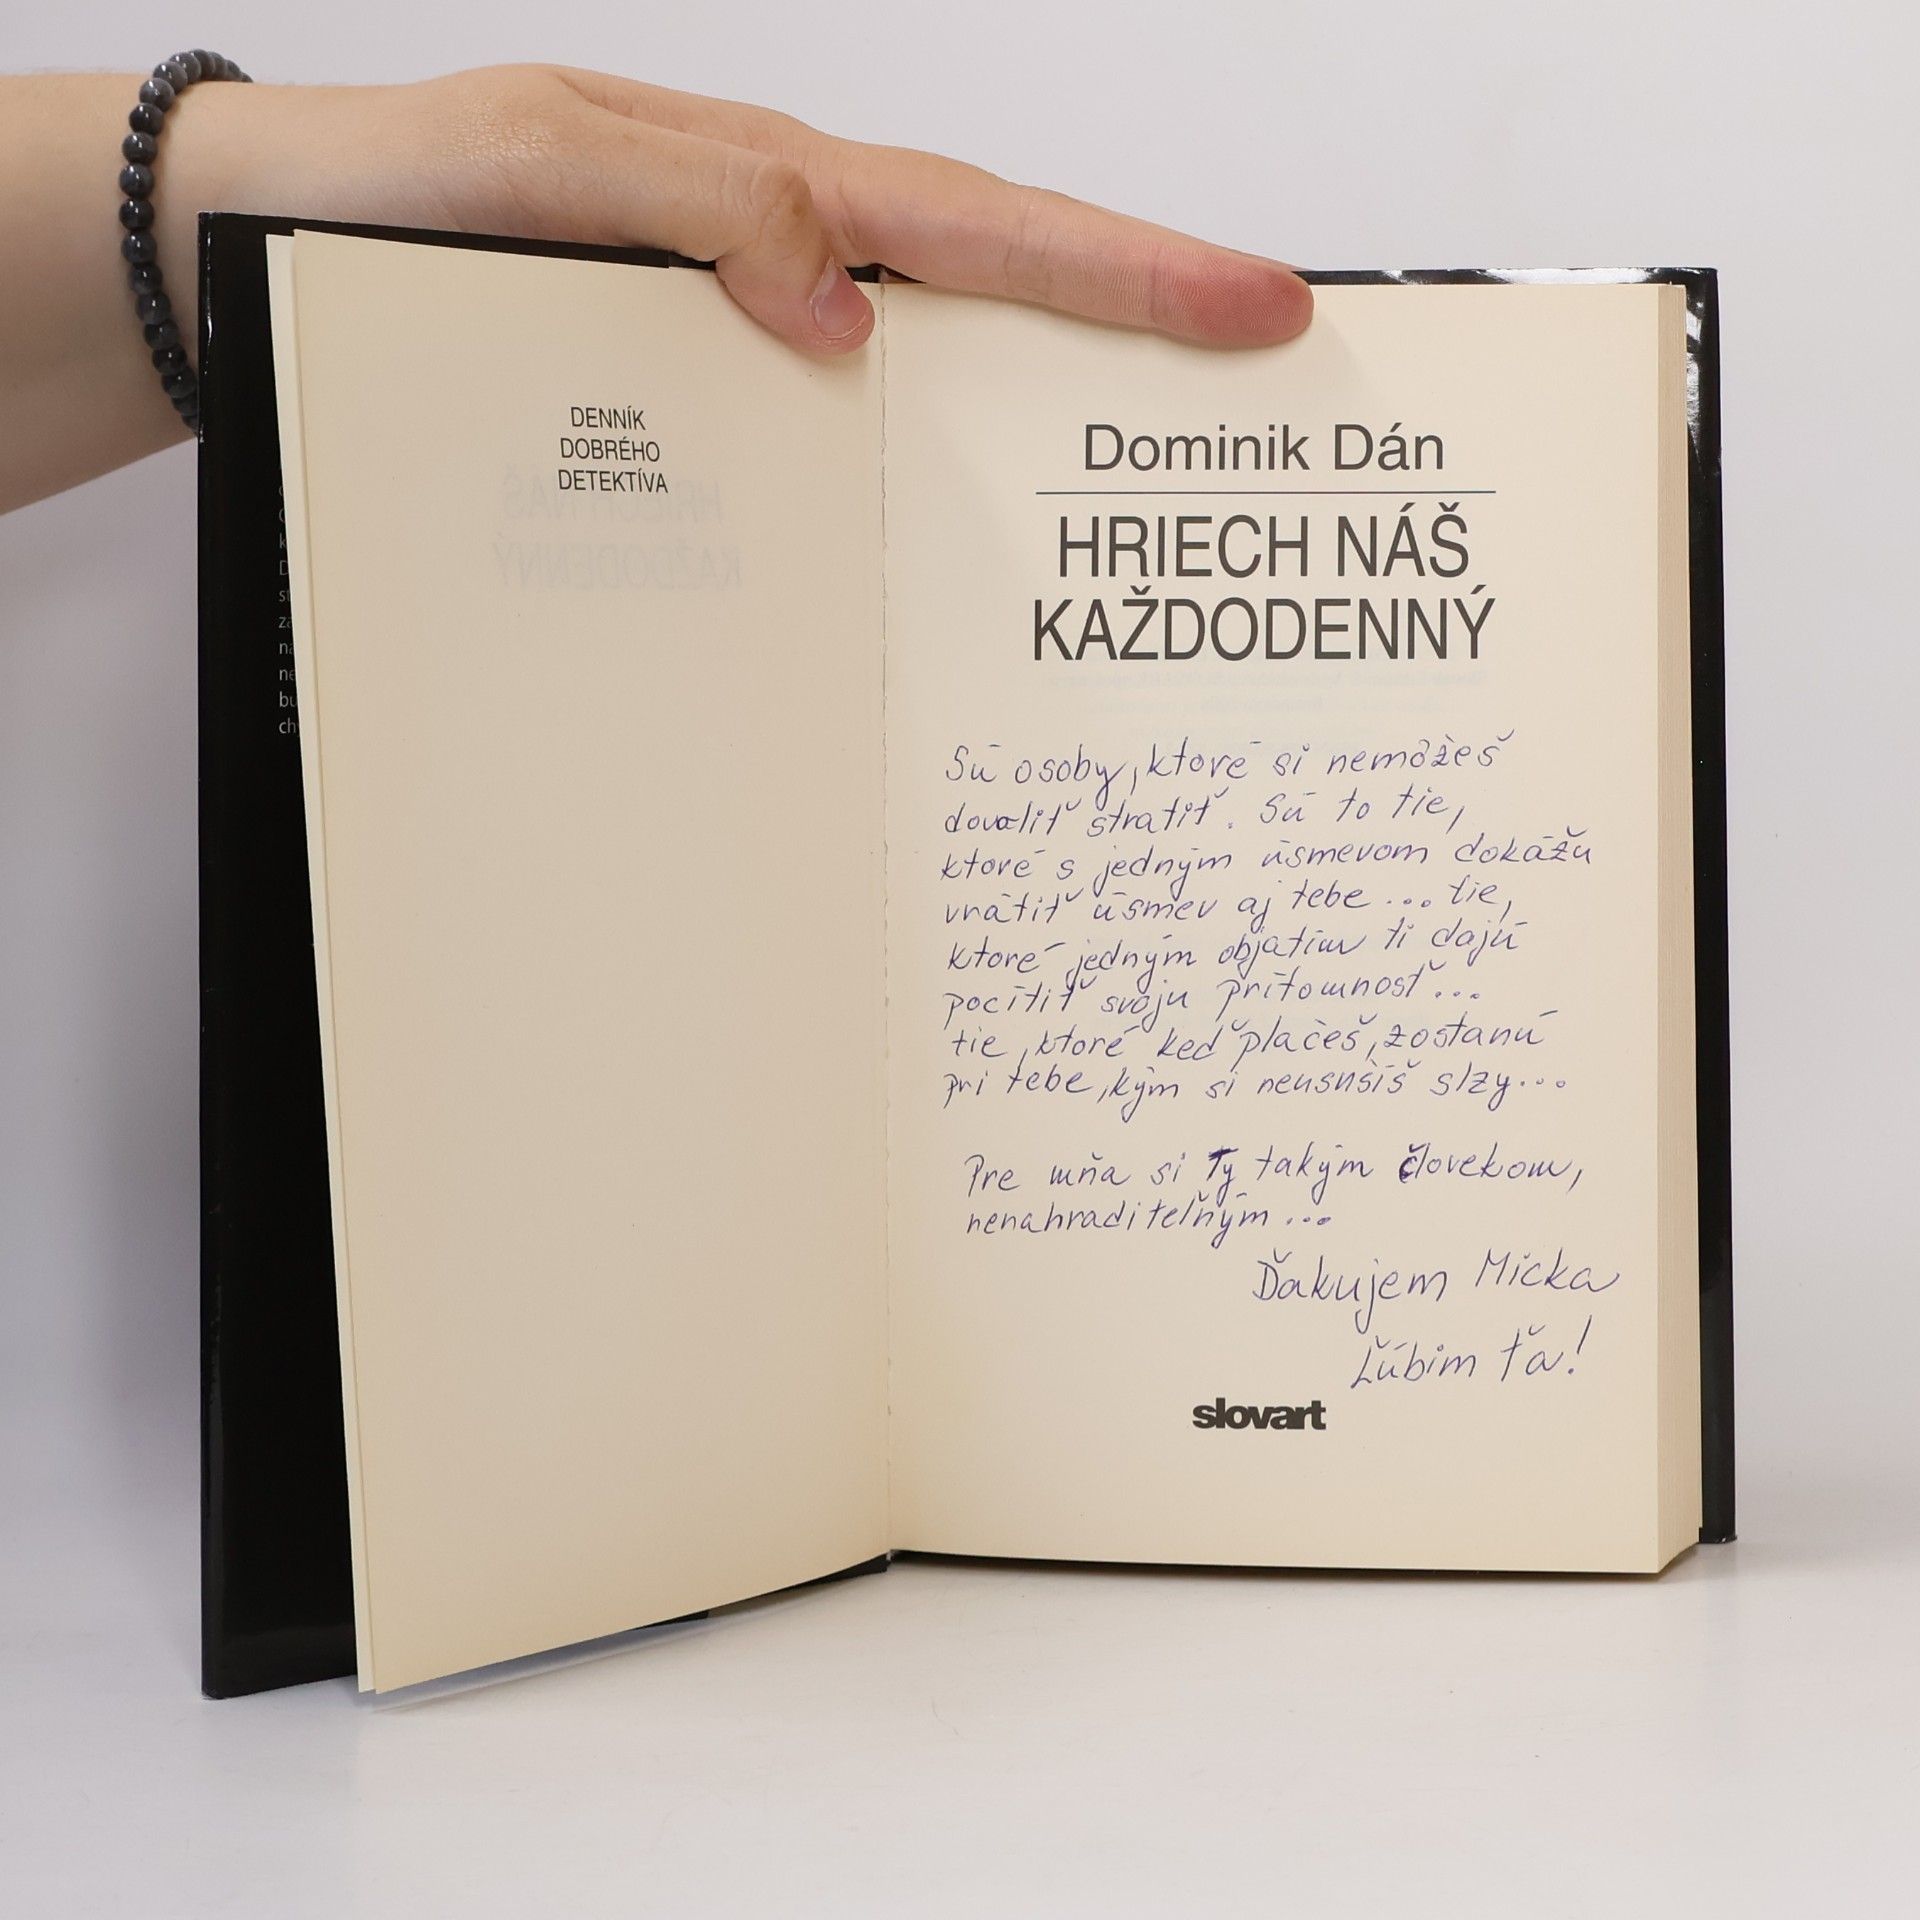 DENNÍK
DOBRÉHO
DETEKTÍVA
Dominik Dán
HRIECH NÁŠ
KAŽDODENNÝ
Sú osoby, ktoré si nemôžeš
dovoliť stratiť. Sú to tie,
ktoré s jedným úsmevom dokážu
vrátiť úsmev aj tebe... tie,
ktoré jedným objatím ti dajú
pocítiť svoju prítomnosť...
tie, ktoré keď plačeš, zostanú
pri tebe, kým si neusušíš slzy...
Pre mňa si Ty takým človekom,
nenahraditeľným...
Ďakujem Micka
Ľúbim ťa!
slovart